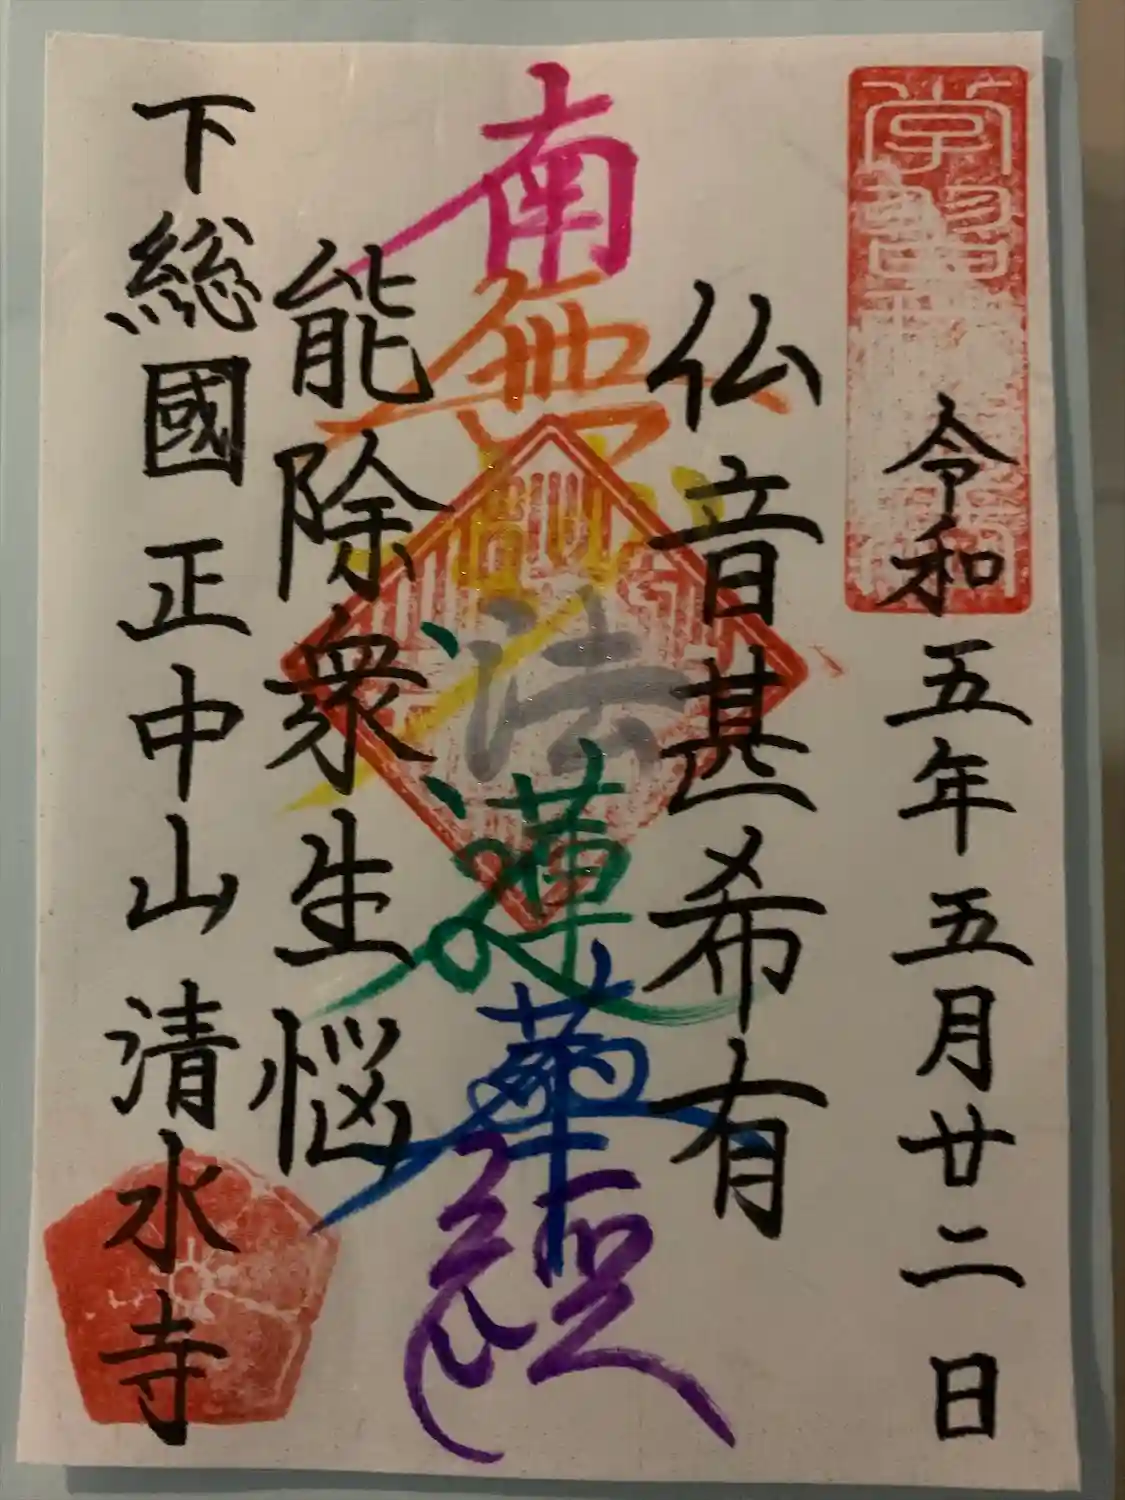 令和五年五月廿二日
仏音甚希有
南無妙法蓮華經
能除衆生悩
下総國 正中山 清水寺